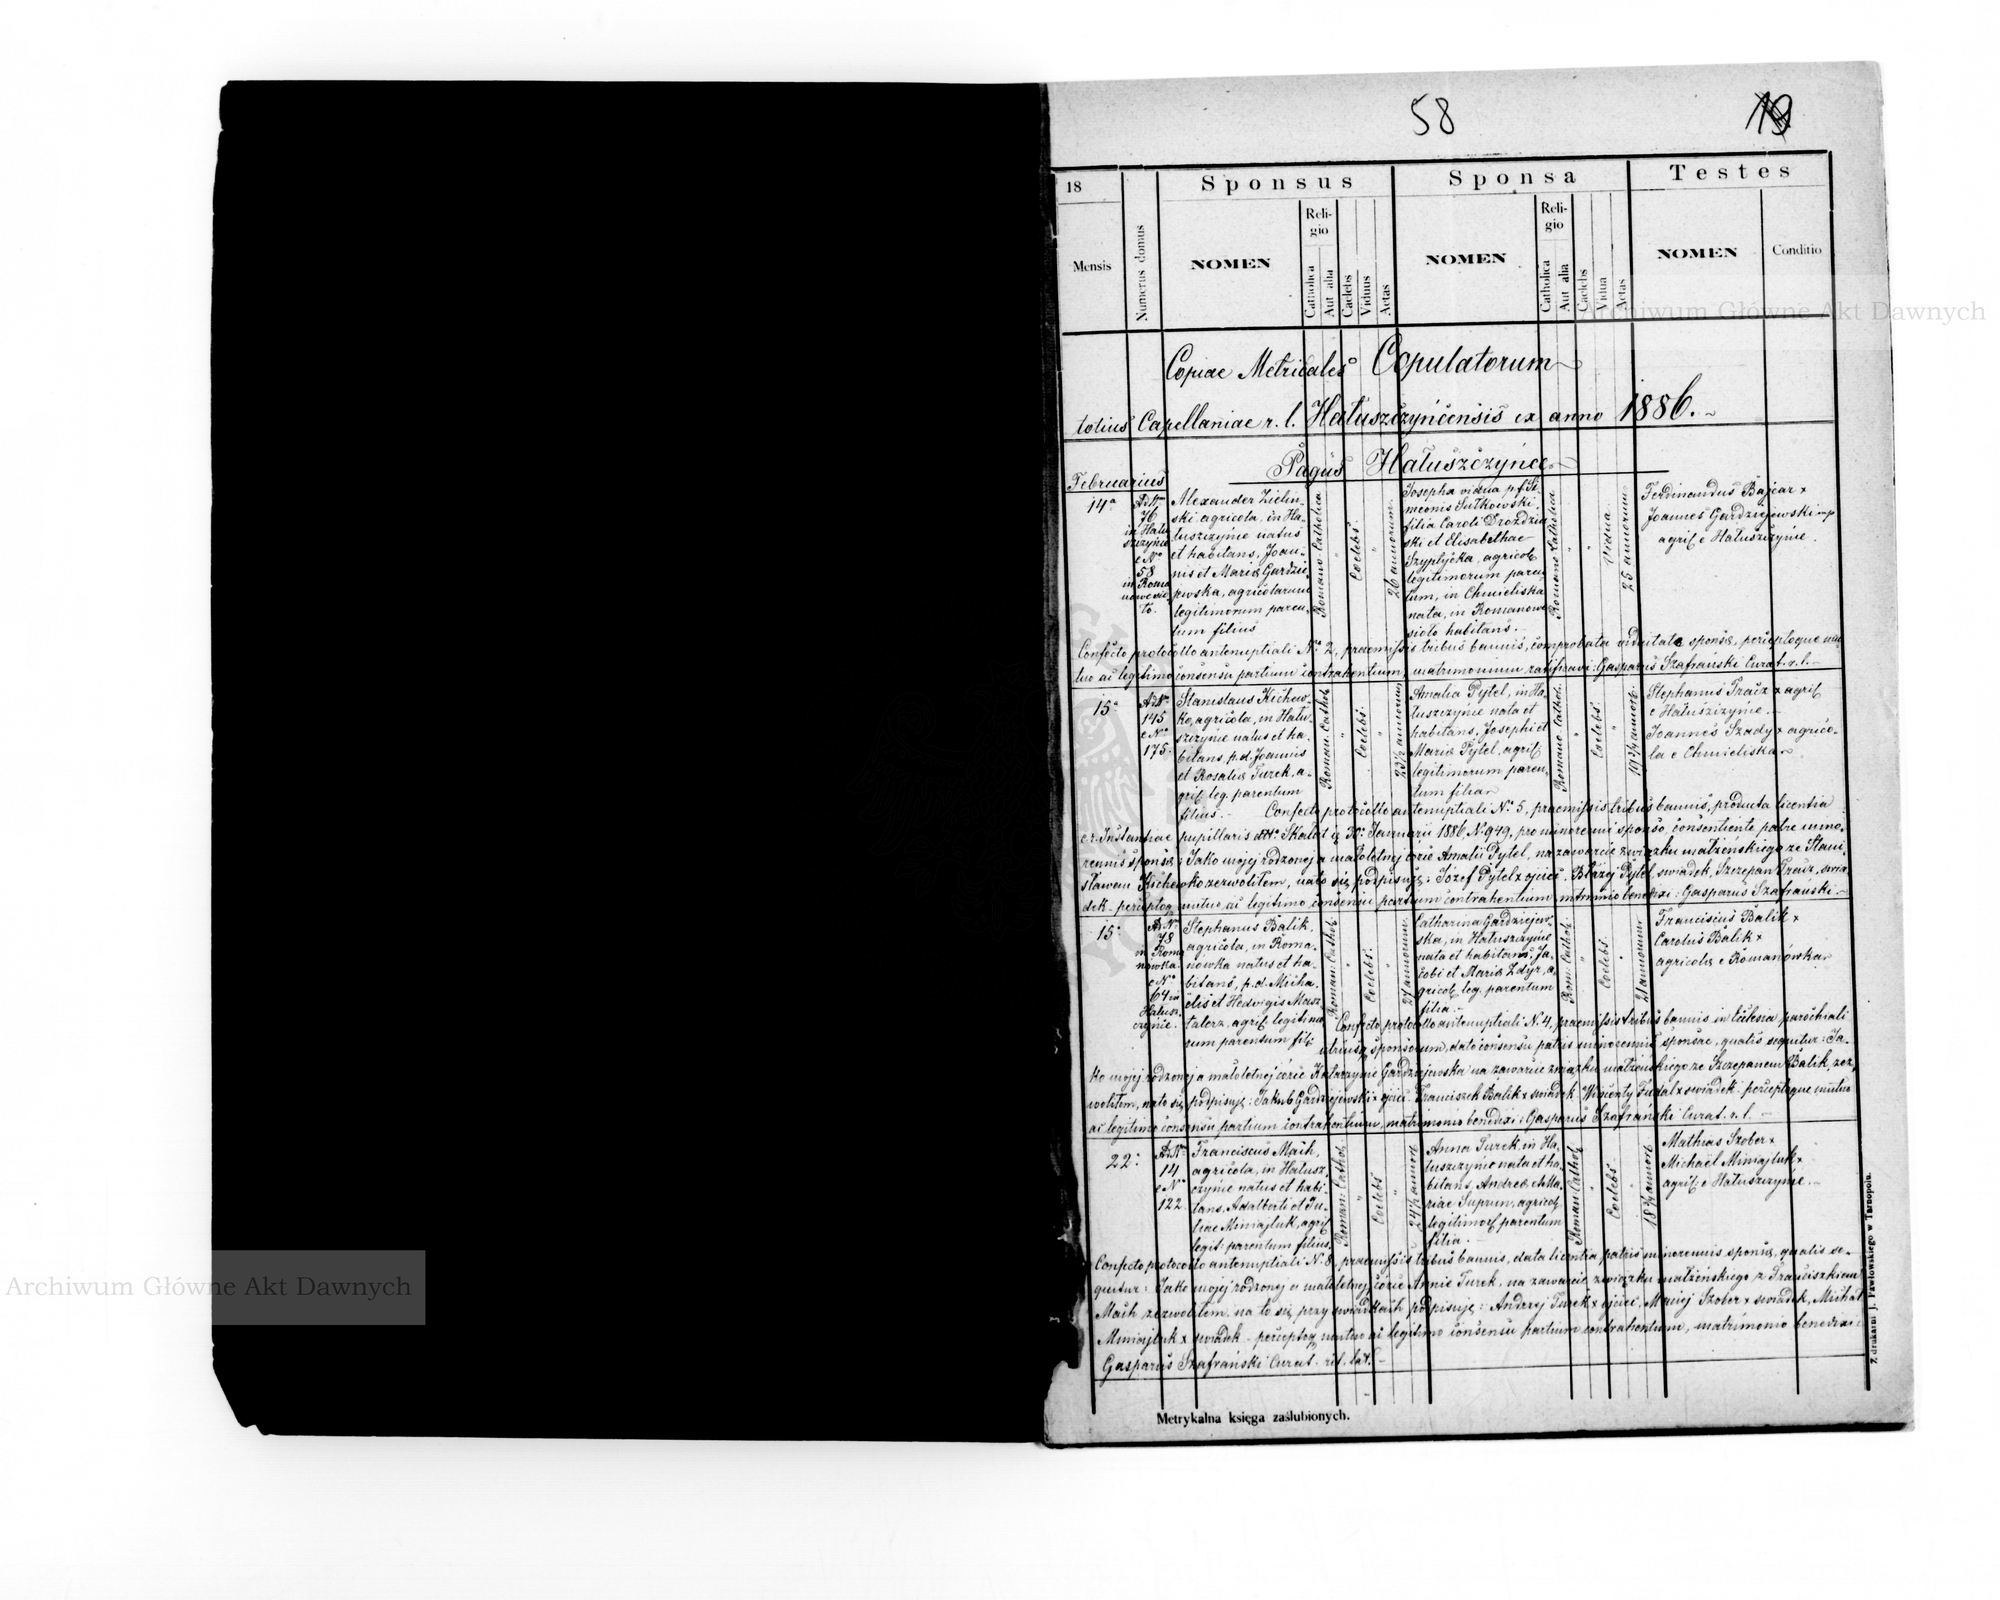 58
18
Sponsus
Sponsa
Testes
Mensis
Numerus domus
NOMEN
Religio
Catholica
Aut alia
Caelebs
Viduus
Aetas
NOMEN
Religio
Catholica
Aut alia
Caelebs
Vidua
Aetas
NOMEN
Conditio
Copiae Metricales Copulatorum
totius Capellaniae r. l. Hałuszczyńcensis ex anno 1886.
Pagus Hałuszczyńce
Februarius
14ª
76
in Hału-
szczyńce
e Nº
58
in Roma-
nowe sio-
ło.
Alexander Zieliń-
ski agricola, in Ha-
łuszczyńce natus
et habitans, Joan-
nis et Mariæ Gardzie-
jewska, agricolarum
legitimorum paren-
tum filius
Romano-Catholica
Coelebs
26 annorum
Josepha vidua p. f. Si-
meonis Sutkowski
filia Caroli Droździń-
ski et Elisabethae
Szyplycka, agricol.
legitimorum paren-
tum, in Chmieliska
nata, in Romanowe
sioło habitans.
Romano Catholica
Vidua
25 annorum
Ferdinandus Bajcar x
Joannes Gardziejewski mp
agric. e Hałuszczyńce.
Confecto protocollo antenuptiali Nº 2, praemissis tribus bannis, comprobata viduitate sponsæ, perceptoque mu-
tuo ac legitimo consensu partium contrahentium, matrimonium ratificavi: Gasparus Szafrański Curat. r. l.
15ª
145
e Nº
175.
Stanislaus Kichew-
ko, agricola, in Hału-
szczyńce natus et ha-
bitans, p. d. Joannis
et Rosaliæ Turek, a-
gric. leg. parentum
filius.
Roman. Cathol.
Coelebs
23½ annorum
Amalia Pytel, in Ha-
łuszczyńce nata et
habitans, Josephi et
Mariæ Pytel, agric.
legitimorum paren-
tum filia
Romano Cathol.
Coelebs
Stephanus Tracz x agric.
e Hałuszczyńce.
Joannes Szady x agrico-
la e Chmieliska
Confecto protocollo antenuptiali Nº 5, praemissis tribus bannis, producta licentia
c. r. Instantiae pupillaris Skałat 30. Januarii 1886 Nº 949, pro minorenni sponso, consentiente patre mino-
rennis sponsæ: Jako mojej rodzonej a małoletniej córce Amalii Pytel, na zawarcie związku małżeńskiego ze Stani-
sławem Kichewko zezwoliłem, na to się podpisuję: Józef Pytel x ojciec. Błażej Pytel, świadek, Szczepan Tracz, świa-
dek. percepto mutuo ac legitimo consensu partium contrahentium, mtrimonio benedixi: Gasparus Szafrański.
15ª
78
in Roma-
nówka
e Nº
64 in
Hałusz-
czyńce.
Stephanus Balik,
agricola, in Roma-
nówka natus et ha-
bitans, p. d. Micha-
elis et Hedvigis Musz-
talerz, agric. legitimo-
rum parentum fil.
Roman. Cathol.
Coelebs
27 annorum
Catharina Gardziejew-
ska, in Hałuszczyńce
nata et habitans, Ja-
cobi et Mariæ Zdyr, a-
gricol. leg. parentum
filia.
Rom. Cathol.
Coelebs
21 annorum
Franciscus Balik x
Carolus Balik x
agricolæ e Romanówka
Confecto protocollo antenuptiali Nº 4, praemissis tribus bannis in Ecclesia parochiali
utriusq. sponsorum, dato consensu patris minorennis sponsae, qualis sequitur: Ja-
ko mojej rodzonej a małoletniej córce Katarzynie Gardziejewska na zawarcie związku małżeńskiego ze Szczepanem Balik, zez-
woliłem, na to się podpisuję: Jakub Gardziejewski x ojciec. Franciszek Balik x świadek. Wincenty Fudal x świadek. perceptoque mutuo
ac legitimo consensu partium contrahentium, matrimonio benedixi: Gasparus Szafrański Curat. r. l.
22ª
14
e Nº
122
Franciscus Mach,
agricola, in Hałusz-
czyńce natus et habi-
tans, Adalberti et Ju-
liae Miniajluk, agric.
legit. parentum filius.
Roman. Cathol.
Coelebs
24½ annor.
Anna Turek, in Ha-
łuszczyńce nata et ha-
bitans, Andreæ et Ma-
riae Suprun, agricol.
legitimor. parentum
filia.
Roman. Cathol.
Coelebs
Mathias Szober x
Michaël Miniajluk x
agric. e Hałuszczyńce.
Confecto protocollo antenuptiali Nº 8, praemissis tribus bannis, data licentia patris minorennis sponsæ, qualis se-
quitur: Jako mojej rodzonej a małoletniej córce Annie Turek, na zawarcie związku małżeńskiego z Franciszkiem
Mach zezwoliłem, na to się przy świadkach podpisuję: Andrzej Turek x ojciec, Maciej Szober x świadek, Michał
Miniajluk x świadek - perceptoq. mutuo ac legitimo consensu partium contrahentium, matrimonio benedixi:
Gasparus Szafrański Curat. rit. lat.
Metrykalna księga zaślubionych.
Z drukarni J. Pawłowskiego w Tarnopolu.
Archiwum Główne Akt Dawnych
Archiwum Główne Akt Dawnych